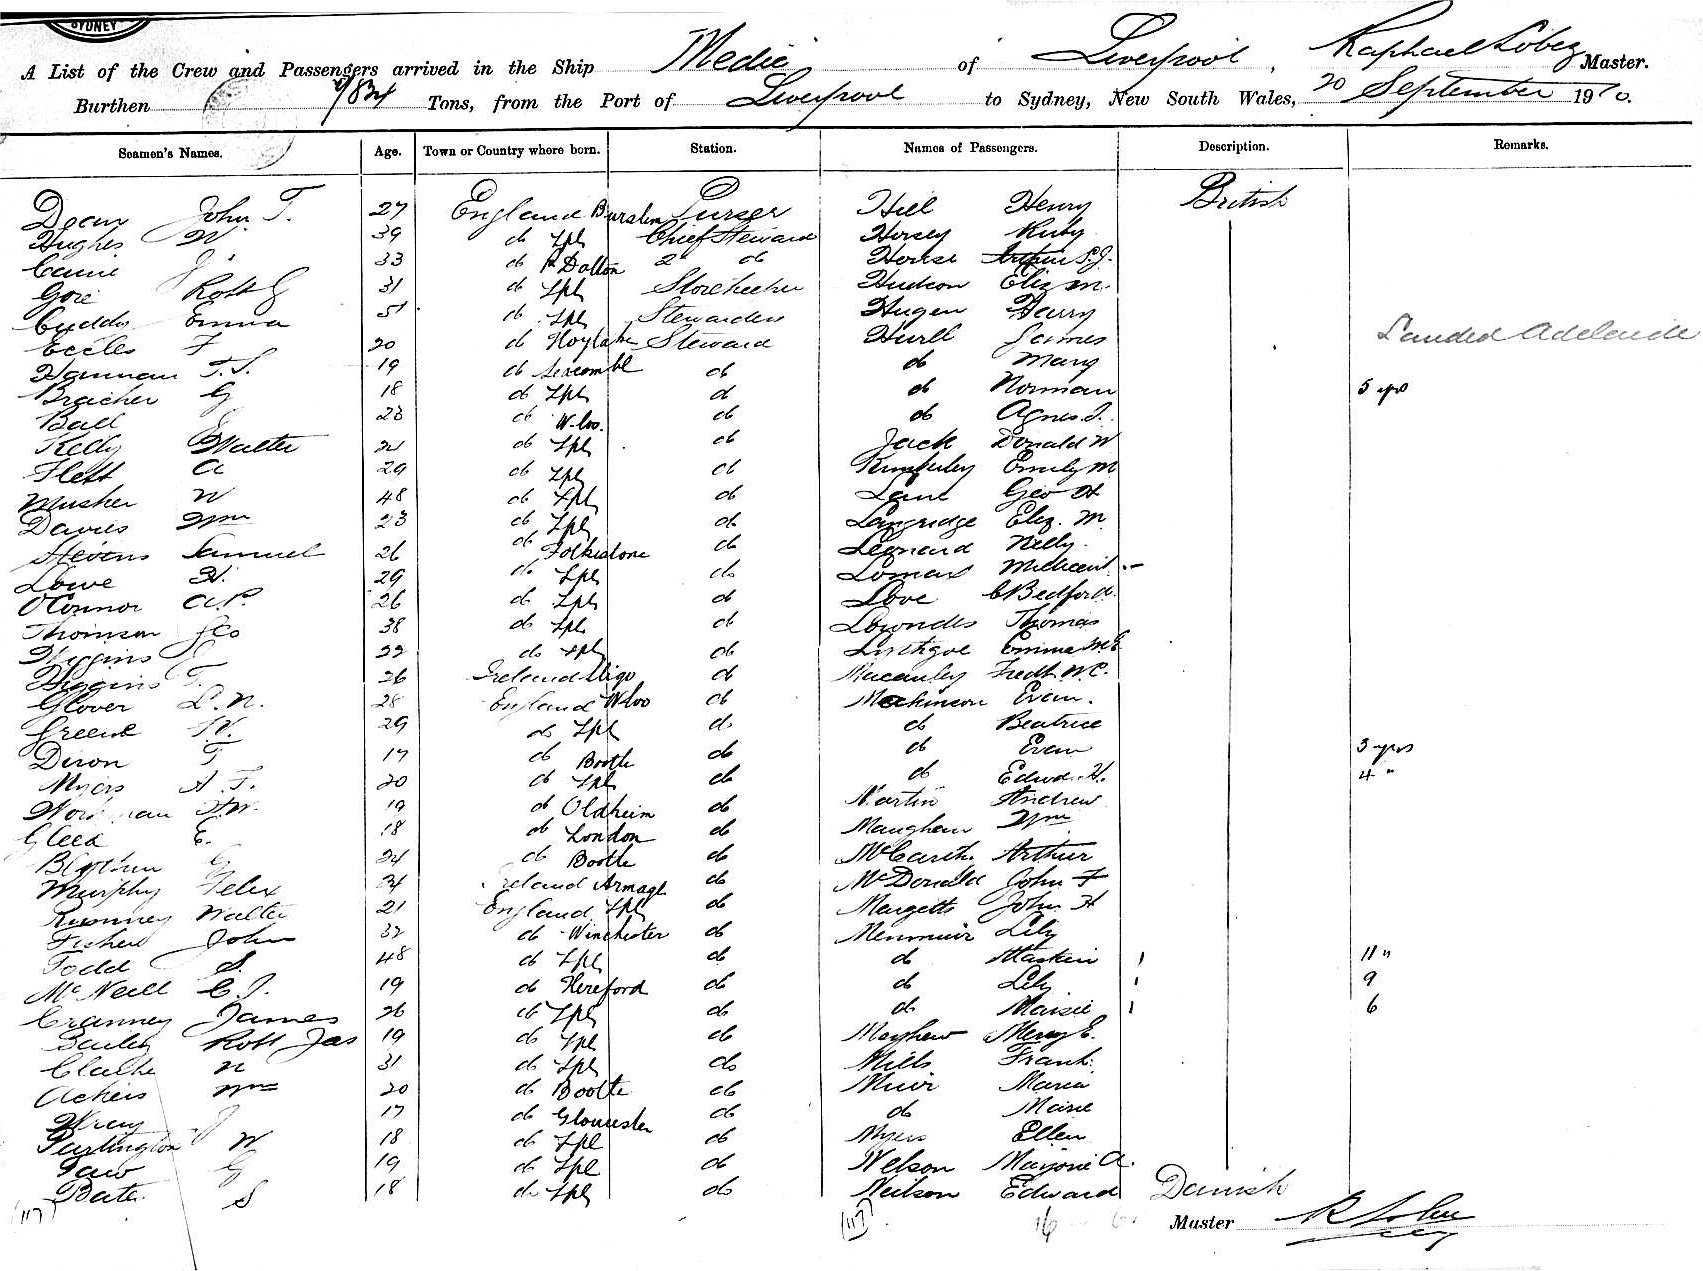 SYDNEY
A List of the Crew and Passengers arrived in the Ship Medic of Liverpool, Raphael Master.
Burthen Tons, from the Port of Liverpool to Sydney, New South Wales, 20 September 1910.
Seamen's Names. Age. Town or Country where born. Station. Names of Passengers. Description. Remarks.
Dean John T. 27 England Burslem Purser Hill Henry British
Hughes W. 39 do Lpl Chief Steward Horsey Ruby
J. 33 do Dalton 2 do House Arthur S.J.
Gore Robt G 31 do Lpl Storekeeper Hudson Eliz M.
Emma 51 do Lpl Stewardess Hugen Harry
Eccles F 20 do Hoylake Steward Hurll James Landed Adelaide
T.S. 19 do Seacombe do do Mary
Bracher G 18 do Lpl do do Norman 5 yrs
Ball 23 do W-loo. do do Agnes J.
Kelly Walter do Lpl do Jack Donald W
Flett A 29 do Lpl do Kimberley Emily M
Musker W 48 do Lpl do Lane Geo H
Davies Wm 23 do Lpl do Langridge Eliz. M.
Stevens Samuel 26 do Folkestone do Leonard Nelly
Lowe H. 29 do Lpl do Lomax Millicent
O'Connor A.P. 26 do Lpl do Love C Bedford
Thomson Geo 38 do Lpl do Lowndes Thomas
Higgins 22 do Lpl do Emma
Higgins T. 26 Ireland Sligo do Macauley Fredk W.C.
Glover L.N. 28 England W-loo do Mackinnon Evan.
Greene W. 29 do Lpl do do Beatrice
Dixon T 17 do Bootle do do Evan 3 yrs
Myers A.F. 20 do Lpl do do Edwd. H. 4 "
Workman H.W. 19 do Oldham do Martin Andrew
Gleed E. 18 do London do Maughan Wm
G 24 do Bootle do Arthur
Murphy Felix 34 Ireland Armagh do McDonald John F
Rumney Walter 21 England Lpl do Margetts John H
Fisher John 32 do Winchester do Menmuir Lily
Todd S. 48 do Lpl do do 11 "
McNeill C.J. 19 do Hereford do do Lily 9
Cranney James 26 do Lpl do do Maisie 6
Bailey Robt Jas 19 do Lpl do Mayhew Mercy E.
Clarke N 31 do Lpl do Mills Frank
Ackers Wm 20 do Bootle do Muir Maria
Wray J 17 do Gloucester do do Marie
Partington W 18 do Lpl do Myers Ellen
G 19 do Lpl do Nelson Marjorie A.
Bate S 18 do Lpl do Neilson Edward Danish
(117) (117) 16 Master